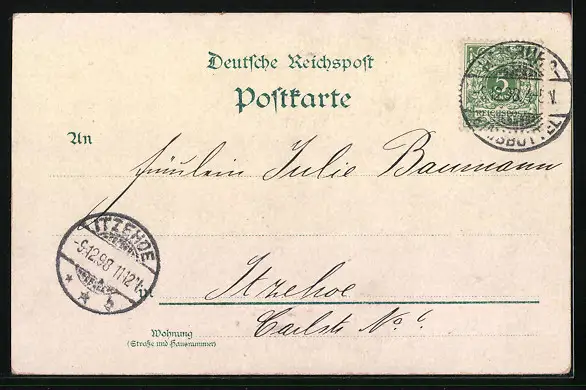 Deutsche Reichspost
Postkarte
5
An
Fräulein Julie Baumann
ITZEHOE
-9.12.98 11-12 V.
* * b
Itzehoe
Carlstr No 6.
Wohnung
(Straße und Hausnummer)